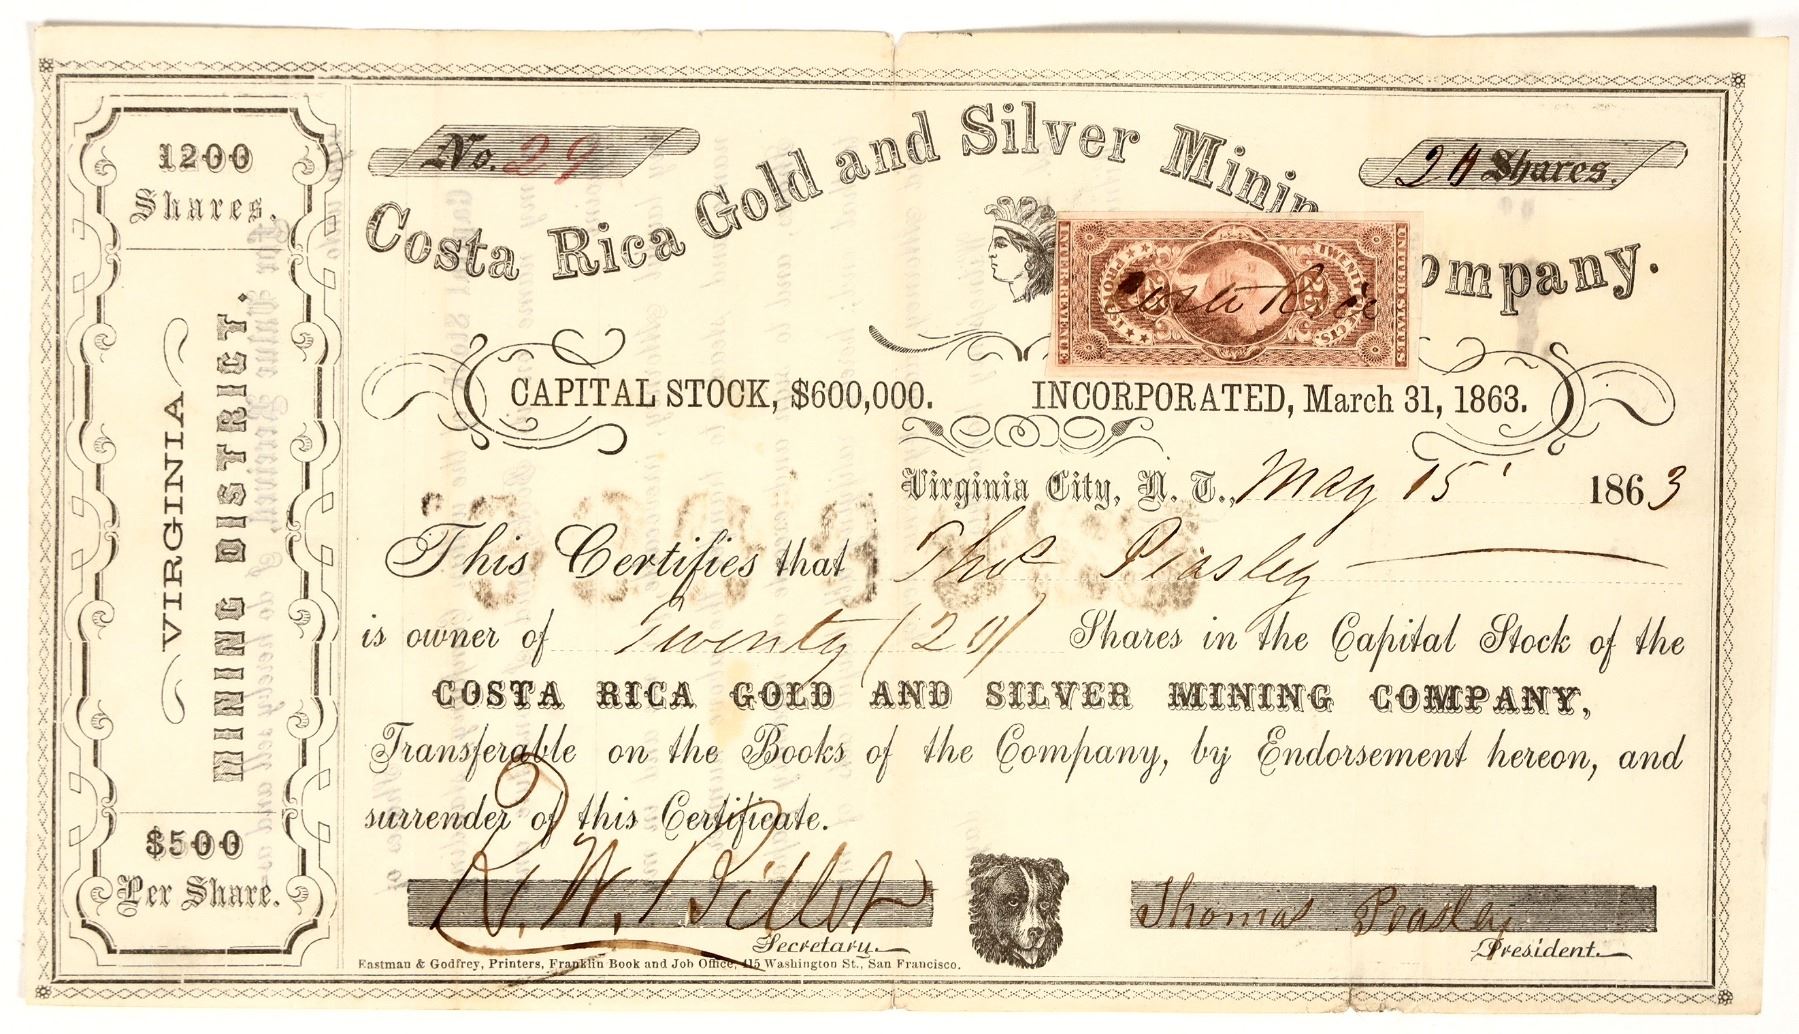 1200
Shares.
VIRGINIA
MINING DISTRICT.
$500
Per Share.
No. 29
20 Shares.
Costa Rica Gold and Silver Minin ompany.
UNITED STATES
TWENTY FIVE CTS.
25
Costa Rica
CAPITAL STOCK, $600,000. INCORPORATED, March 31, 1863.
Virginia City, N. T., May 15 1863
This Certifies that Thos Peasley
is owner of Twenty (20) Shares in the Capital Stock of the
COSTA RICA GOLD AND SILVER MINING COMPANY,
Transferable on the Books of the Company, by Endorsement hereon, and
surrender of this Certificate.
Secretary.
Thomas Peasley
President.
Eastman & Godfrey, Printers, Franklin Book and Job Office, 415 Washington St., San Francisco.